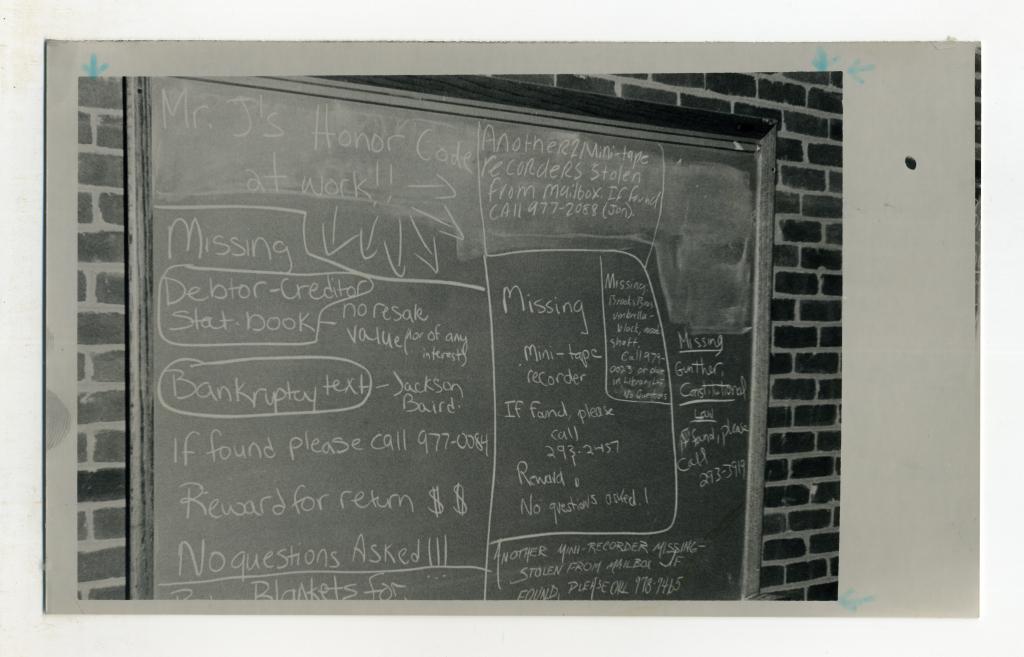 Mr. J's Honor Code
at work!! →
Missing
Debtor-Creditor
Stat. book - no resale
value, nor of any
interest,
Bankruptcy text - Jackson
Baird.
If found please call 977-0084
Reward for return $ $
No questions Asked!!!
Blankets for
Another 2 Mini-tape
recorders stolen
from mailbox. If found
CALL 977-2088 (Jon).
Missing
Mini-tape
recorder
If found, please
call
293-2457
Reward,
No questions asked!
Missing
Brooks Bros
umbrella-
black, wood
shaft.
Call 979-
0023 or place
in Library
No Questions
Missing
Gunther,
Constitutional
Law
If found, please
Call
293-3919
ANOTHER MINI-RECORDER MISSING-
STOLEN FROM MAILBOX IF
FOUND, PLEASE CALL 978-7465